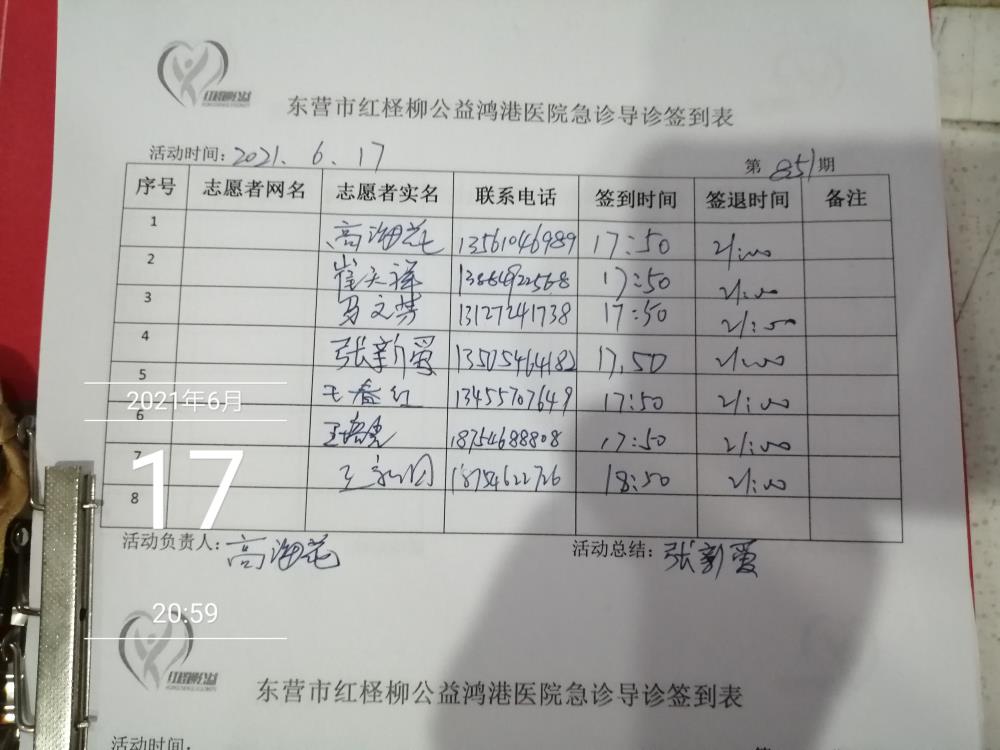 东营市红柽柳公益鸿港医院急诊导诊签到表
活动时间:2021.6.17 第851期
序号 志愿者网名 志愿者实名 联系电话 签到时间 签退时间 备注
1 高海花 13561046989 17:50 21:00
2 崔天祥 17:50 21:00
3 马文 13127241738 17:50 21:00
4 张新爱 13505464182 17.50 21:00
5 王春红 13455707649 17:50 21:00
6 王 18754688808 17:50 21:00
7 王 18754622726 18:50 21:00
8
活动负责人:高海花 活动总结:张新爱
2021年6月
17
20:59
东营市红柽柳公益鸿港医院急诊导诊签到表
活动时间: